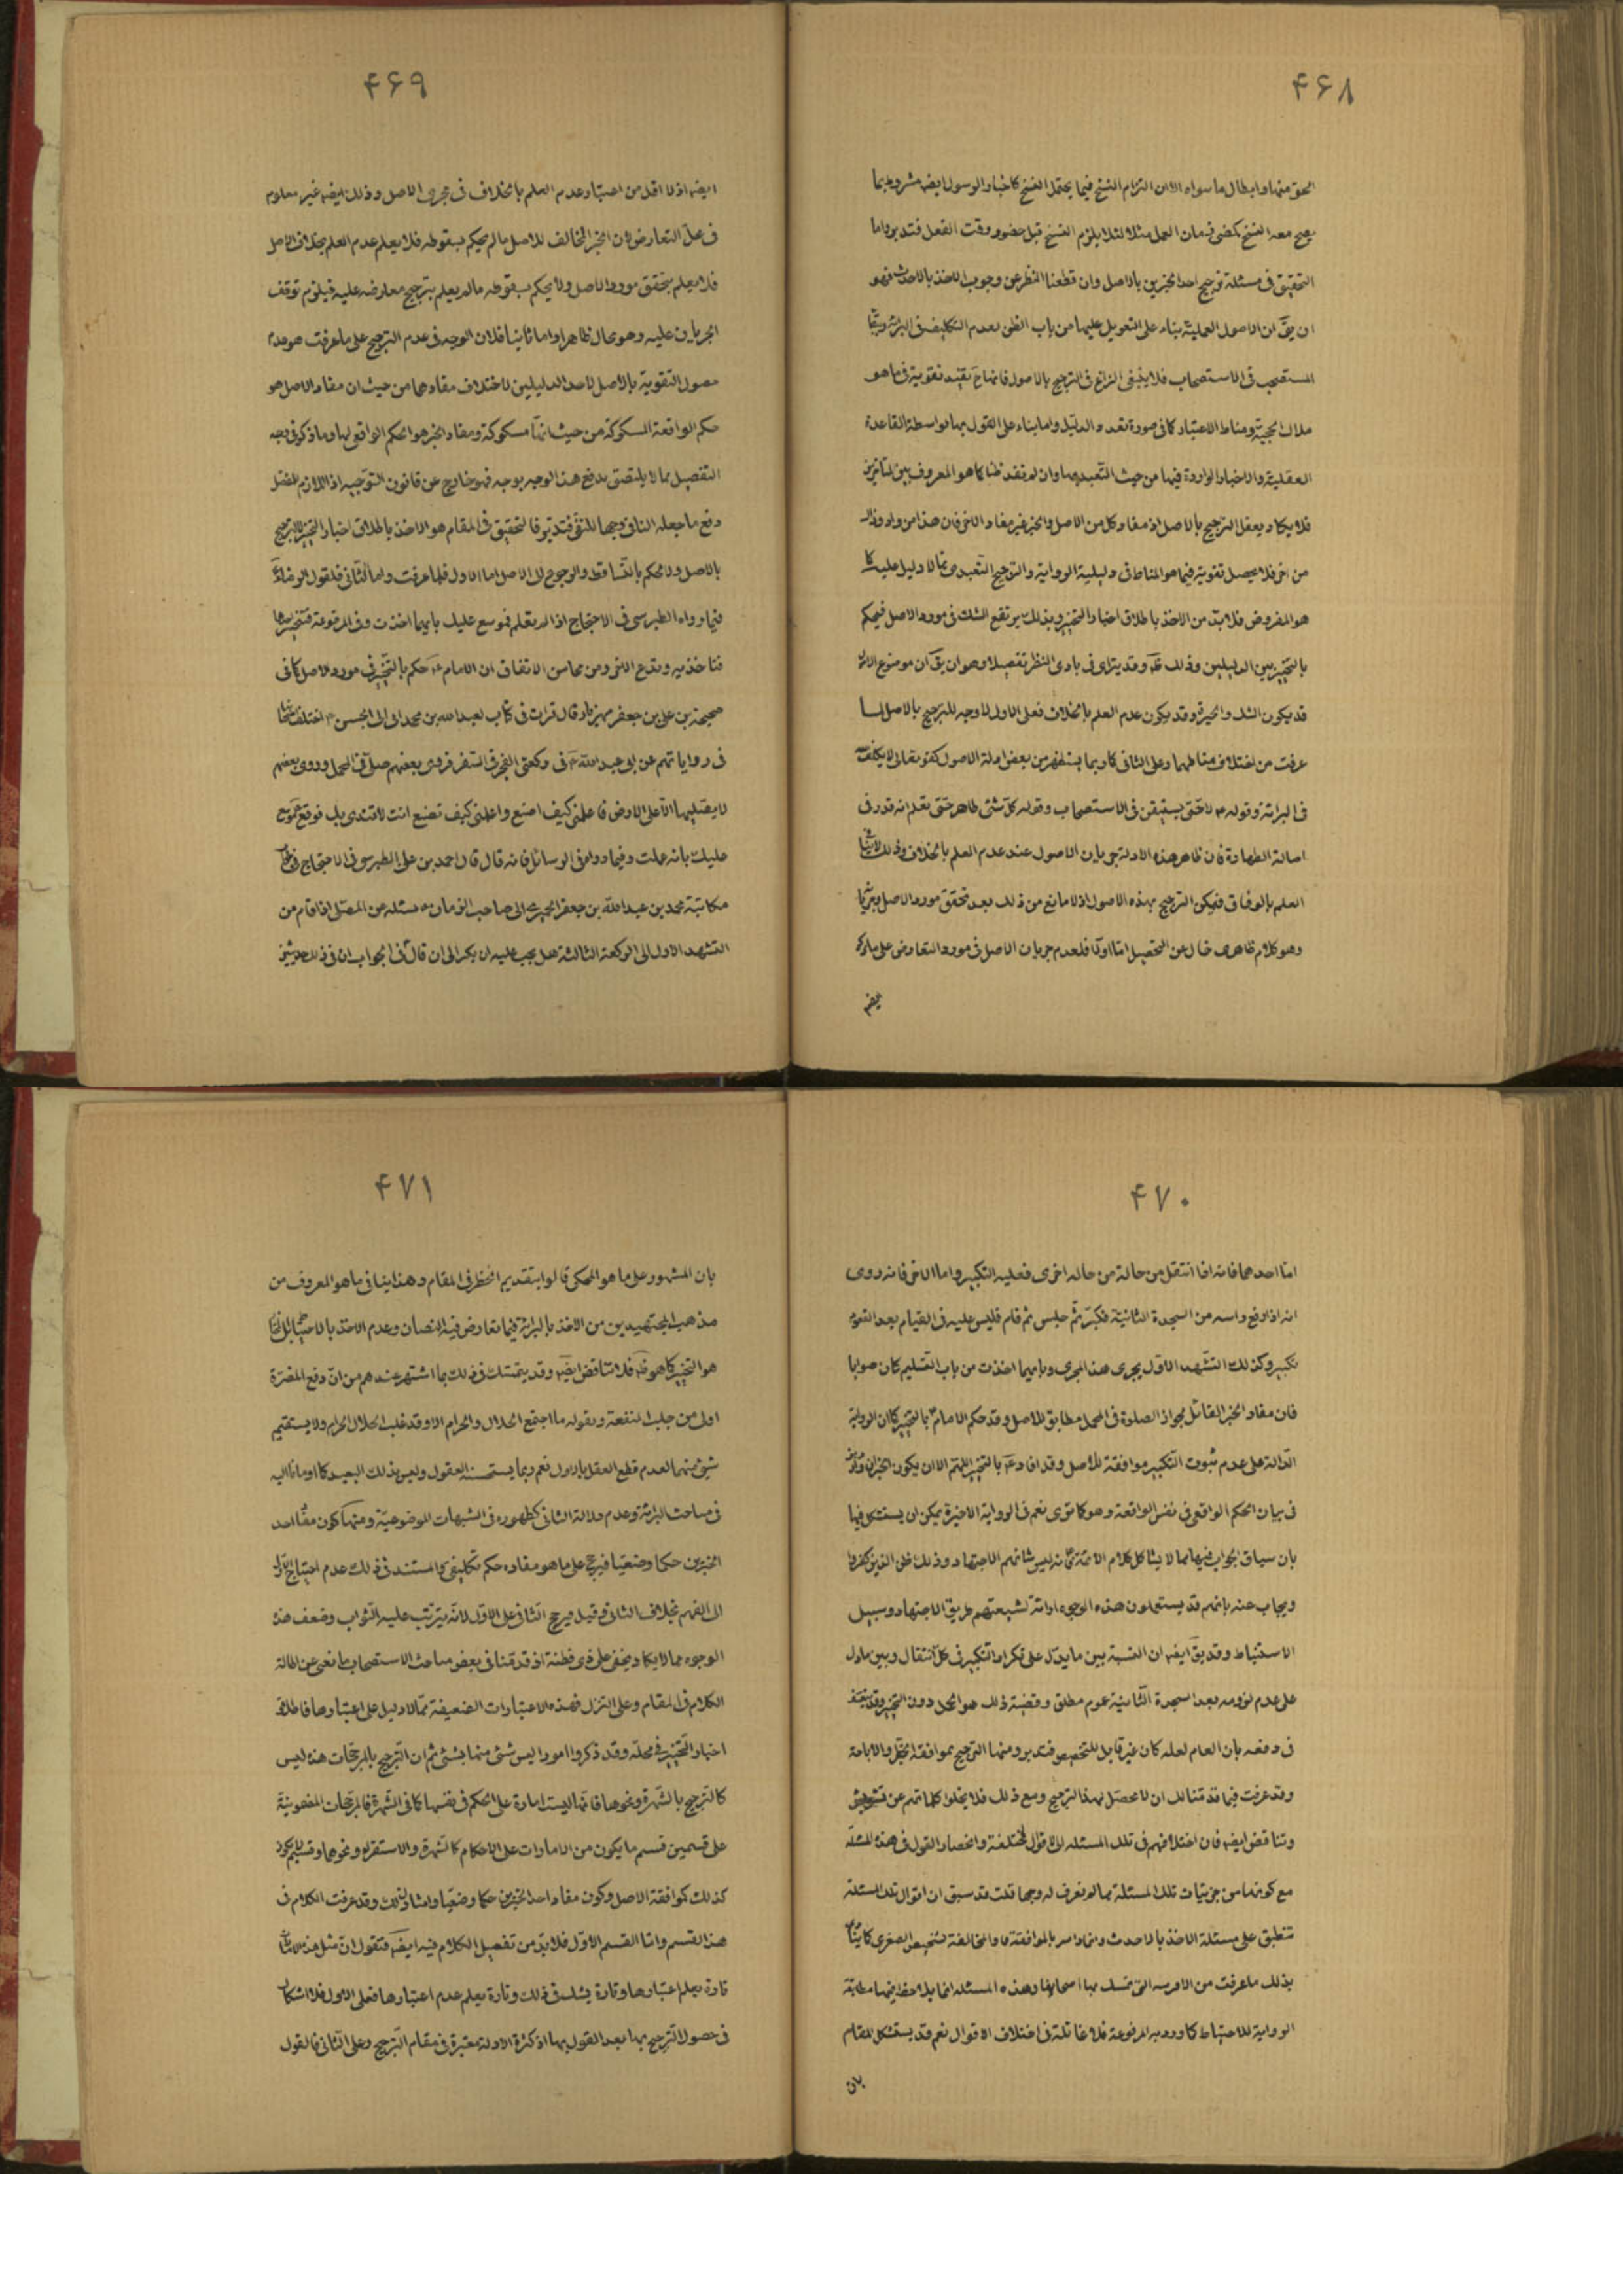 ۴۶۸
الحق منها وابطال ما سواه الا ان التزام النسخ فيما يحتمل النسخ كاخبار الرسول ايضه مشروط بما
يصح معه النسخ كمضى زمان العمل مثلا لئلا يلزم النسخ قبل حضور وقت الفعل فتدبر واما
التحقيق فى مسئلة ترجيح احد الخبرين بالاصل وان قطعنا النظر عن وجوب الاخذ بالاحدث فهو
ان يقّ ان الاصول العملية بناء على التعويل عليها من باب الظن بعدم التكليف فى البرائة وببقاء
المستصحب فى الاستصحاب فلا ينبغى النزاع فى الترجيح بالاصول فانها ح تفيد تقوية فى ما هو
ملاك الحجية ومناط الاعتبار كما فى صورة تعدد الدليل واما بناء على القول بها بواسطة القاعدة
العقلية والاخبار الواردة فيها من حيث التعبد بها وان لم نفد ظنا كما هو المعروف بين المتاخرين
فلا يكاد يعقل الترجيح بالاصل اذ مفاد كل من الاصل والخبر غير مفاد الاخر فان هذا من واد وذاك
من اخر فلا يحصل تقوية فيما هو المناط فى دليلية الرواية والترجيح التعبدى مما لا دليل عليه كما
هو المفروض فلا بد من الاخذ باطلاق اخبار التخيير وبذلك يرتفع الشك فى مورد الاصل فيحكم
بالتخيير بين الدليلين وذلك ظ وقد يتراى فى بادى النظر تفصيلا وهو ان يقّ ان موضوع الاصل
قد يكون الشك والحيرة وقد يكون عدم العلم بالخلاف فعلى الاول لا وجه للترجيح بالاصل لما
عرفت من اختلاف مناطهما وعلى الثانى كما ربما يستظهر من بعض ادلة الاصول كقوله تعالى لا يكلف الله
فى البرائة وقوله ع لا حتى يستيقن فى الاستصحاب وقوله كل شئ طاهر حتى تعلم انه قذر فى
اصالة الطهارة فان ظاهر هذه الادلة جريان الاصول عند عدم العلم بالخلاف وذلك لا ينافى
العلم بالوفاق فيمكن الترجيح بهذه الاصول اذ لا مانع من ذلك بعد تحقق مورد الاصل وجريانها
وهو كلام ظاهرى خال عن التحصيل اما اولا فلعدم جريان الاصل فى مورد التعارض على ما ذكره
ايضه
۴۶۹
ايضه اذ لا اقل من اعتبار عدم العلم بالخلاف فى مجرى الاصل وذلك ايضه غير معلوم
فى محل التعارض لان الخبر المخالف للاصل ما لم يحكم بسقوطه فلا يعلم عدم العلم بخلاف الاصل
فلا يعلم بتحقق مورد الاصل ولا يحكم بسقوطه ما لم يعلم بترجيح معارضه عليه فيلزم توقف
الجريان عليه وهو محال ظاهرا واما ثانيا فلان الوجه فى عدم الترجيح على ما عرفت هو عدم
حصول التقوية بالاصل لاحد الدليلين لاختلاف مفادهما من حيث ان مفاد الاصل هو
حكم الواقعة المشكوكة من حيث انها مشكوكة ومفاد الخبر هو الحكم الواقعى لها وما ذكر فى وجه
التفصيل مما لا يلتصق بدفع هذا الوجه بوجه فهو خارج عن قانون التوجيه اذ اللازم للمفصل
دفع ما جعله النافى وجها للنفى فتدبر فالتحقيق فى المقام هو الاخذ باطلاق اخبار التخيير لا الترجيح
بالاصل ولا الحكم بالتساقط والرجوع الى الاصل اما الاول فلما عرفت واما الثانى فلقول الرضا ع
فيما رواه الطبرسى فى الاحتجاج اذا لم تعلم فموسع عليك بايهما اخذت وفى المرفوعة فتخير احدهما
فتاخذ به وتدع الاخر ومن محاسن الاتفاق ان الامام ع حكم بالتخيير فى مورد الاصل كما فى
صحيحة بن على بن جعفر مهزيار قال قرات فى كتاب لعبد الله بن محمد الى ابى الحسن ع اختلف اصحابنا
فى رواياتهم عن ابى عبد الله ع فى ركعتى الفجر فى السفر فروى بعضهم صل فى المحمل وروى بعضهم
لا يصليهما الا على الارض فاعلمنى كيف اصنع واعلمنى كيف تصنع انت لاقتدى بك فوقع ع موسع
عليك بايه عملت وفيما رواه فى الوسائل فانه قال قال احمد بن على الطبرسى فى الاحتجاج فى
مكاتبة محمد بن عبد الله بن جعفر الحميرى الى صاحب الزمان ع مسئله عن المصلى اذا قام من
التشهد الاول الى الركعة الثالثة هل يجب عليه ان يكبر الى ان قال فى الجواب ان فى ذلك حديثين
۴۷۰
اما احدهما فانه اذا انتقل من حالة من حاله اخرى فعليه التكبير واما الاخر فانه روى
انه اذا رفع راسه من السجدة الثانية فكبر ثم جلس ثم قام فليس عليه فى القيام بعد القعود
تكبير وكذلك التشهد الاول يجرى هذا المجرى وبايهما اخذت من باب التسليم كان صوابا
فان مفاد الخبر القائل بجواز الصلوة فى المحمل مطابق للاصل وقد حكم الامام ع بالتخيير كما ان الرواية
الدالة على عدم ثبوت التكبير موافقة للاصل وقد افاد ع بالتخيير اللهم الا ان يكون الخبران
فى بيان الحكم الواقعى فى نفس الواقعة وهو كما ترى نعم فى الرواية الاخيرة يمكن ان يستشكل فيها
بان سياق الجواب فيها مما لا يشاكل كلام الائمة ع لانه ليس شانهم الاجتهاد وذلك ظن الذين كفروا
ويجاب عنه بانهم قد يستعملون هذه الوجوه ارائة لشيعتهم طريق الاجتهاد وسبيل
الاستنباط وقد يقّ ايضه ان النسبة بين ما يدل على تكرار التكبير فى كل انتقال وبين ما دل
على عدم لزومه بعد السجدة الثانية عموم مطلق وقضية ذلك هو الحمل دون التخيير وقد يتعسف
فى دفعه بان العام لعله كان غير قابل للتخصيص فتدبر ومنها الترجيح بموافقة الحظر والاباحة
وقد عرفت فيما قدمنا لك ان لا محصل لهذا الترجيح ومع ذلك فلا يخلوا كلماتهم عن تشويش
وتناقض ايضه فان اختلافهم فى تلك المسئلة الى الاقوال المختلفة وانحصار القول فى هذه المسئلة
مع كونها من جزئيات تلك المسئلة مما لم نعرف له وجها قلت قد سبق ان اقوال تلك المسئلة
تنطبق على مسئلة الاخذ بالاحدث
بذلك ما عرفت من الادلة التى تمسك بها اصحابها وهذه المسئلة انما يلاحظ فيها مطابقة
الرواية للاحتياط كما ورد به المرفوعة فلا غائلة فى اختلاف الاقوال نعم قد يستشكل المقام
بان
۴۷۱
بان المشهور على ما هو المحكى قالوا بتقديم الحظر فى المقام وهذا ينافى ما هو المعروف من
مذهب المجتهدين من الاخذ بالبرائة فيما تعارض فيه النصان وعدم الاخذ بالاحتياط بل
هو التخيير كما هو ظ فلا تناقض ايضه وقد يتمسك فى ذلك بما اشتهر عندهم من ان دفع المضرة
اولى من جلب المنفعة وبقوله ما اجتمع الحلال والحرام الا وقد غلب الحلال الحرام ولا يستقيم
شئ منهما لعدم قطع العقل بالاول نعم ربما يستحسنه العقول وليس بذلك البعيد كما اومانا اليه
فى مباحث البرائة وعدم دلالة الثانى كظهوره فى الشبهات الموضوعية ومنها كون مفاد احد
الخبرين حكما وضعيا فيرجح على ما هو مفاده حكم تكليفى والمستند فى ذلك عدم احتياج الاول
الى الفهم بخلاف الثانى وقيل يرجح الثانى على الاول لانه يترتب عليه الثواب وضعف هذه
الوجوه مما لا يكاد يخفى على ذى فطنة اذ قد قدمنا فى بعض مباحث الاستصحاب ما نغنى عن اطالة
الكلام فى المقام وعلى التنزل فهذه الاعتبارات الضعيفة مما لا دليل على اعتبارها فاطلاق
اخبار التخيير فى محله وقد ذكروا امورا ليس شئ منها بشئ ثم ان الترجيح بالمرجحات هذه ليس
كالترجيح بالشهرة ونحوها فانها ليست امارة على الحكم فى نفسها كما فى الشهرة فالمرجحات المضمونية
على قسمين قسم ما يكون من الامارات على الاحكام كالشهرة والاستقراء ونحوها وقسم لا يكون
كذلك كموافقة الاصل وكون مفاد احد الخبرين حكما وضعيا وامثال ذلك وقد عرفت الكلام فى
هذا القسم واما القسم الاول فلا بد من تفصيل الكلام فيه ايضه فنقول ان مثل هذه الامارات
تارة يعلم اعتبارها وتارة يشك فى ذلك وتارة يعلم عدم اعتبارها فعلى الاول فلا اشكال
فى حصول الترجيح بها بعد القول بها اذ كثرة الادلة معتبرة فى مقام الترجيح وعلى الثانى فالقول